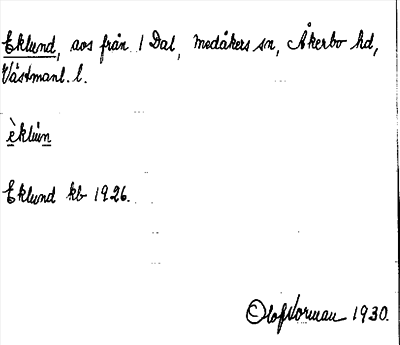 Eklund, aos från 1 Dal, Medåkers sn, Åkerbo hd,
Västmanl. l.
èklún
Eklund kb 1926.
Olof Norman 1930.